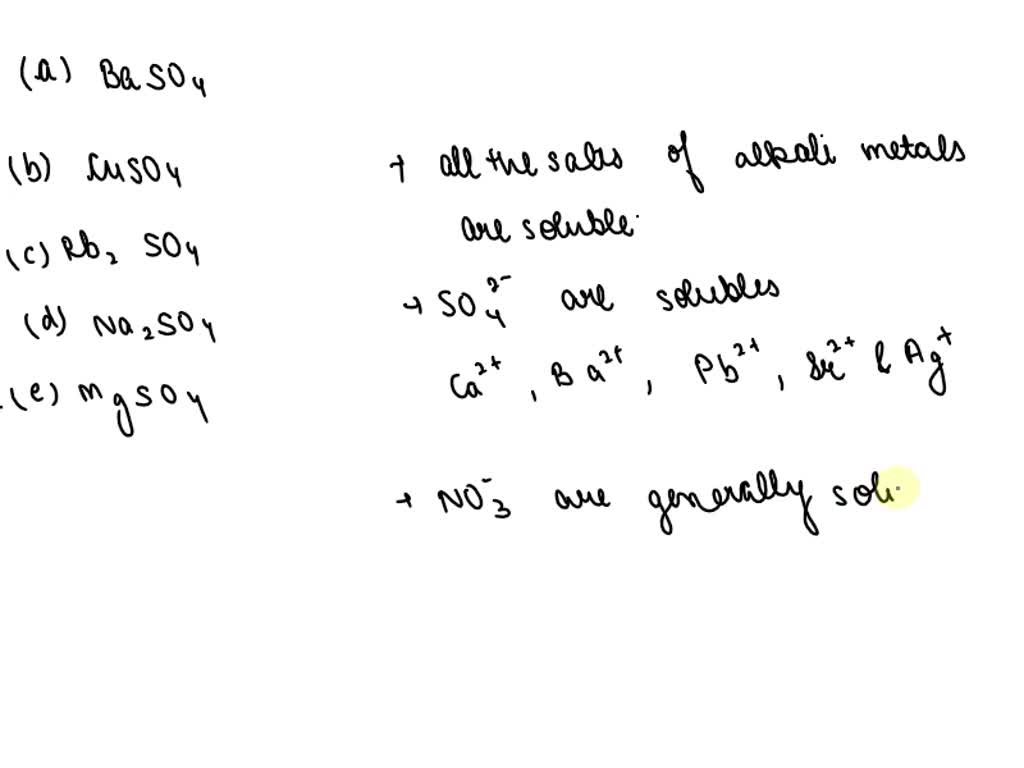 (a) BaSO₄
(b) CuSO₄
(c) Rb₂ SO₄
(d) Na₂SO₄
(e) MgSO₄
→ all the salts of alkali metals
are soluble.
→ SO₄²⁻ are solubles
Ca²⁺, Ba²⁺, Pb²⁺, Sr²⁺ & Ag⁺
→ NO₃⁻ are generally solu